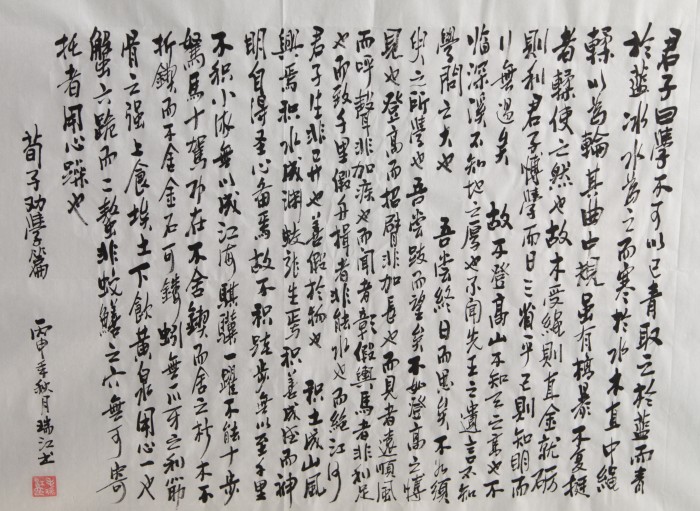 君子曰學不可以已青取之於藍而青
於藍冰水為之而寒於水木直中繩
輮以為輪其曲中規虽有槁暴不复挺
者輮使之然也故木受繩則直金就砺
則利君子博學而日三省乎己則知明而
行無過矣 故不登高山不知天之高也不
臨深溪不知地之厚也不闻先王之遺言不知
學問之大也 吾嘗終日而思矣不如須
臾之所學也吾嘗跂而望矣不如登高之博
見也登高而招臂非加長也而見者遠順風
而呼聲非加疾也而聞者彰假輿馬者非利足
也而致千里假舟楫者非能水也而絕江河
君子生非异也善假於物也 积土成山風
興焉积水成渊蛟龍生焉积善成德而神
明自得圣心备焉故不积跬步無以至千里
不积小流無以成江海騏驥一躍不能十步
駑馬十駕功在不舍鍥而舍之朽木不
折鍥而不舍金石可鏤蚓無爪牙之利筋
骨之强上食埃土下飲黄泉用心一也
蟹六跪而二螯非蛇鱔之穴無可寄
托者用心躁也
荀子劝學篇
丙申年秋月瑞江书